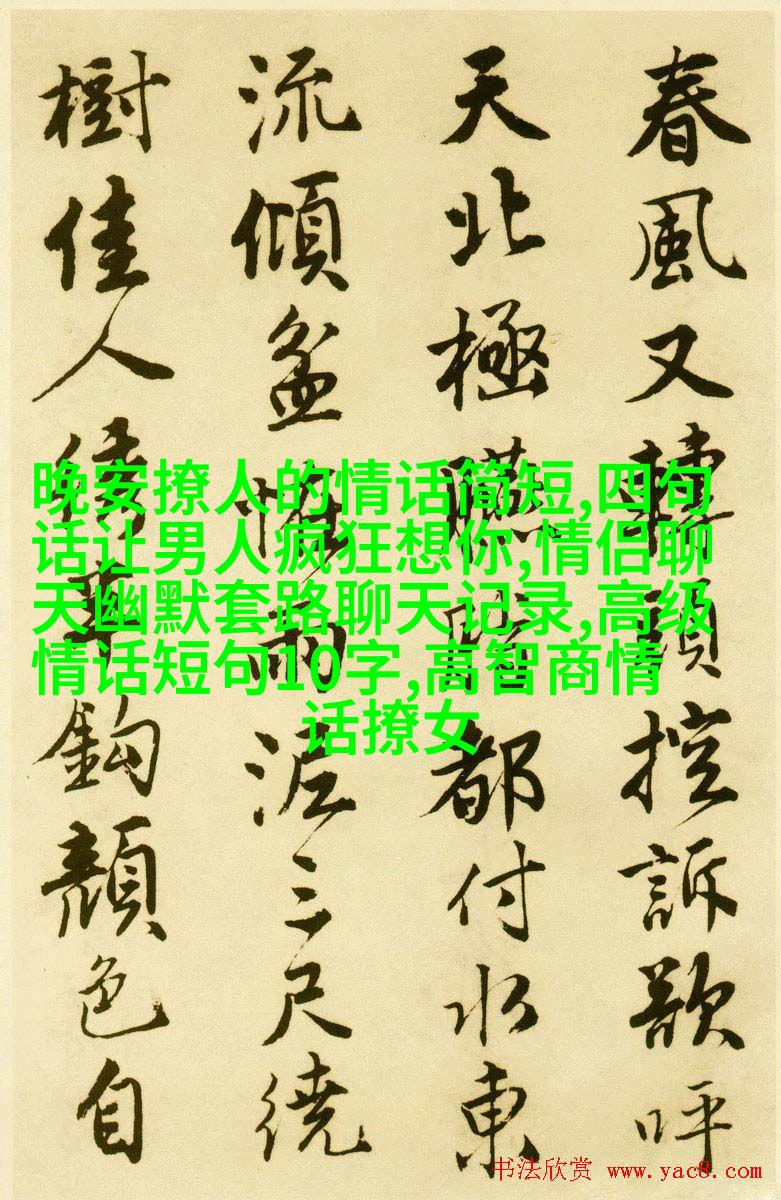 春風又轉控訴呼
天北極都付水東
流傾盆雨三尺繞
樹佳人鈎顏色自
晚安撩人的情话简短,四句
话让男人疯狂想你,情侣聊
天幽默套路聊天记录,高级
情话短句10字,高智商情
话撩女
书法欣赏 www.yac8.com